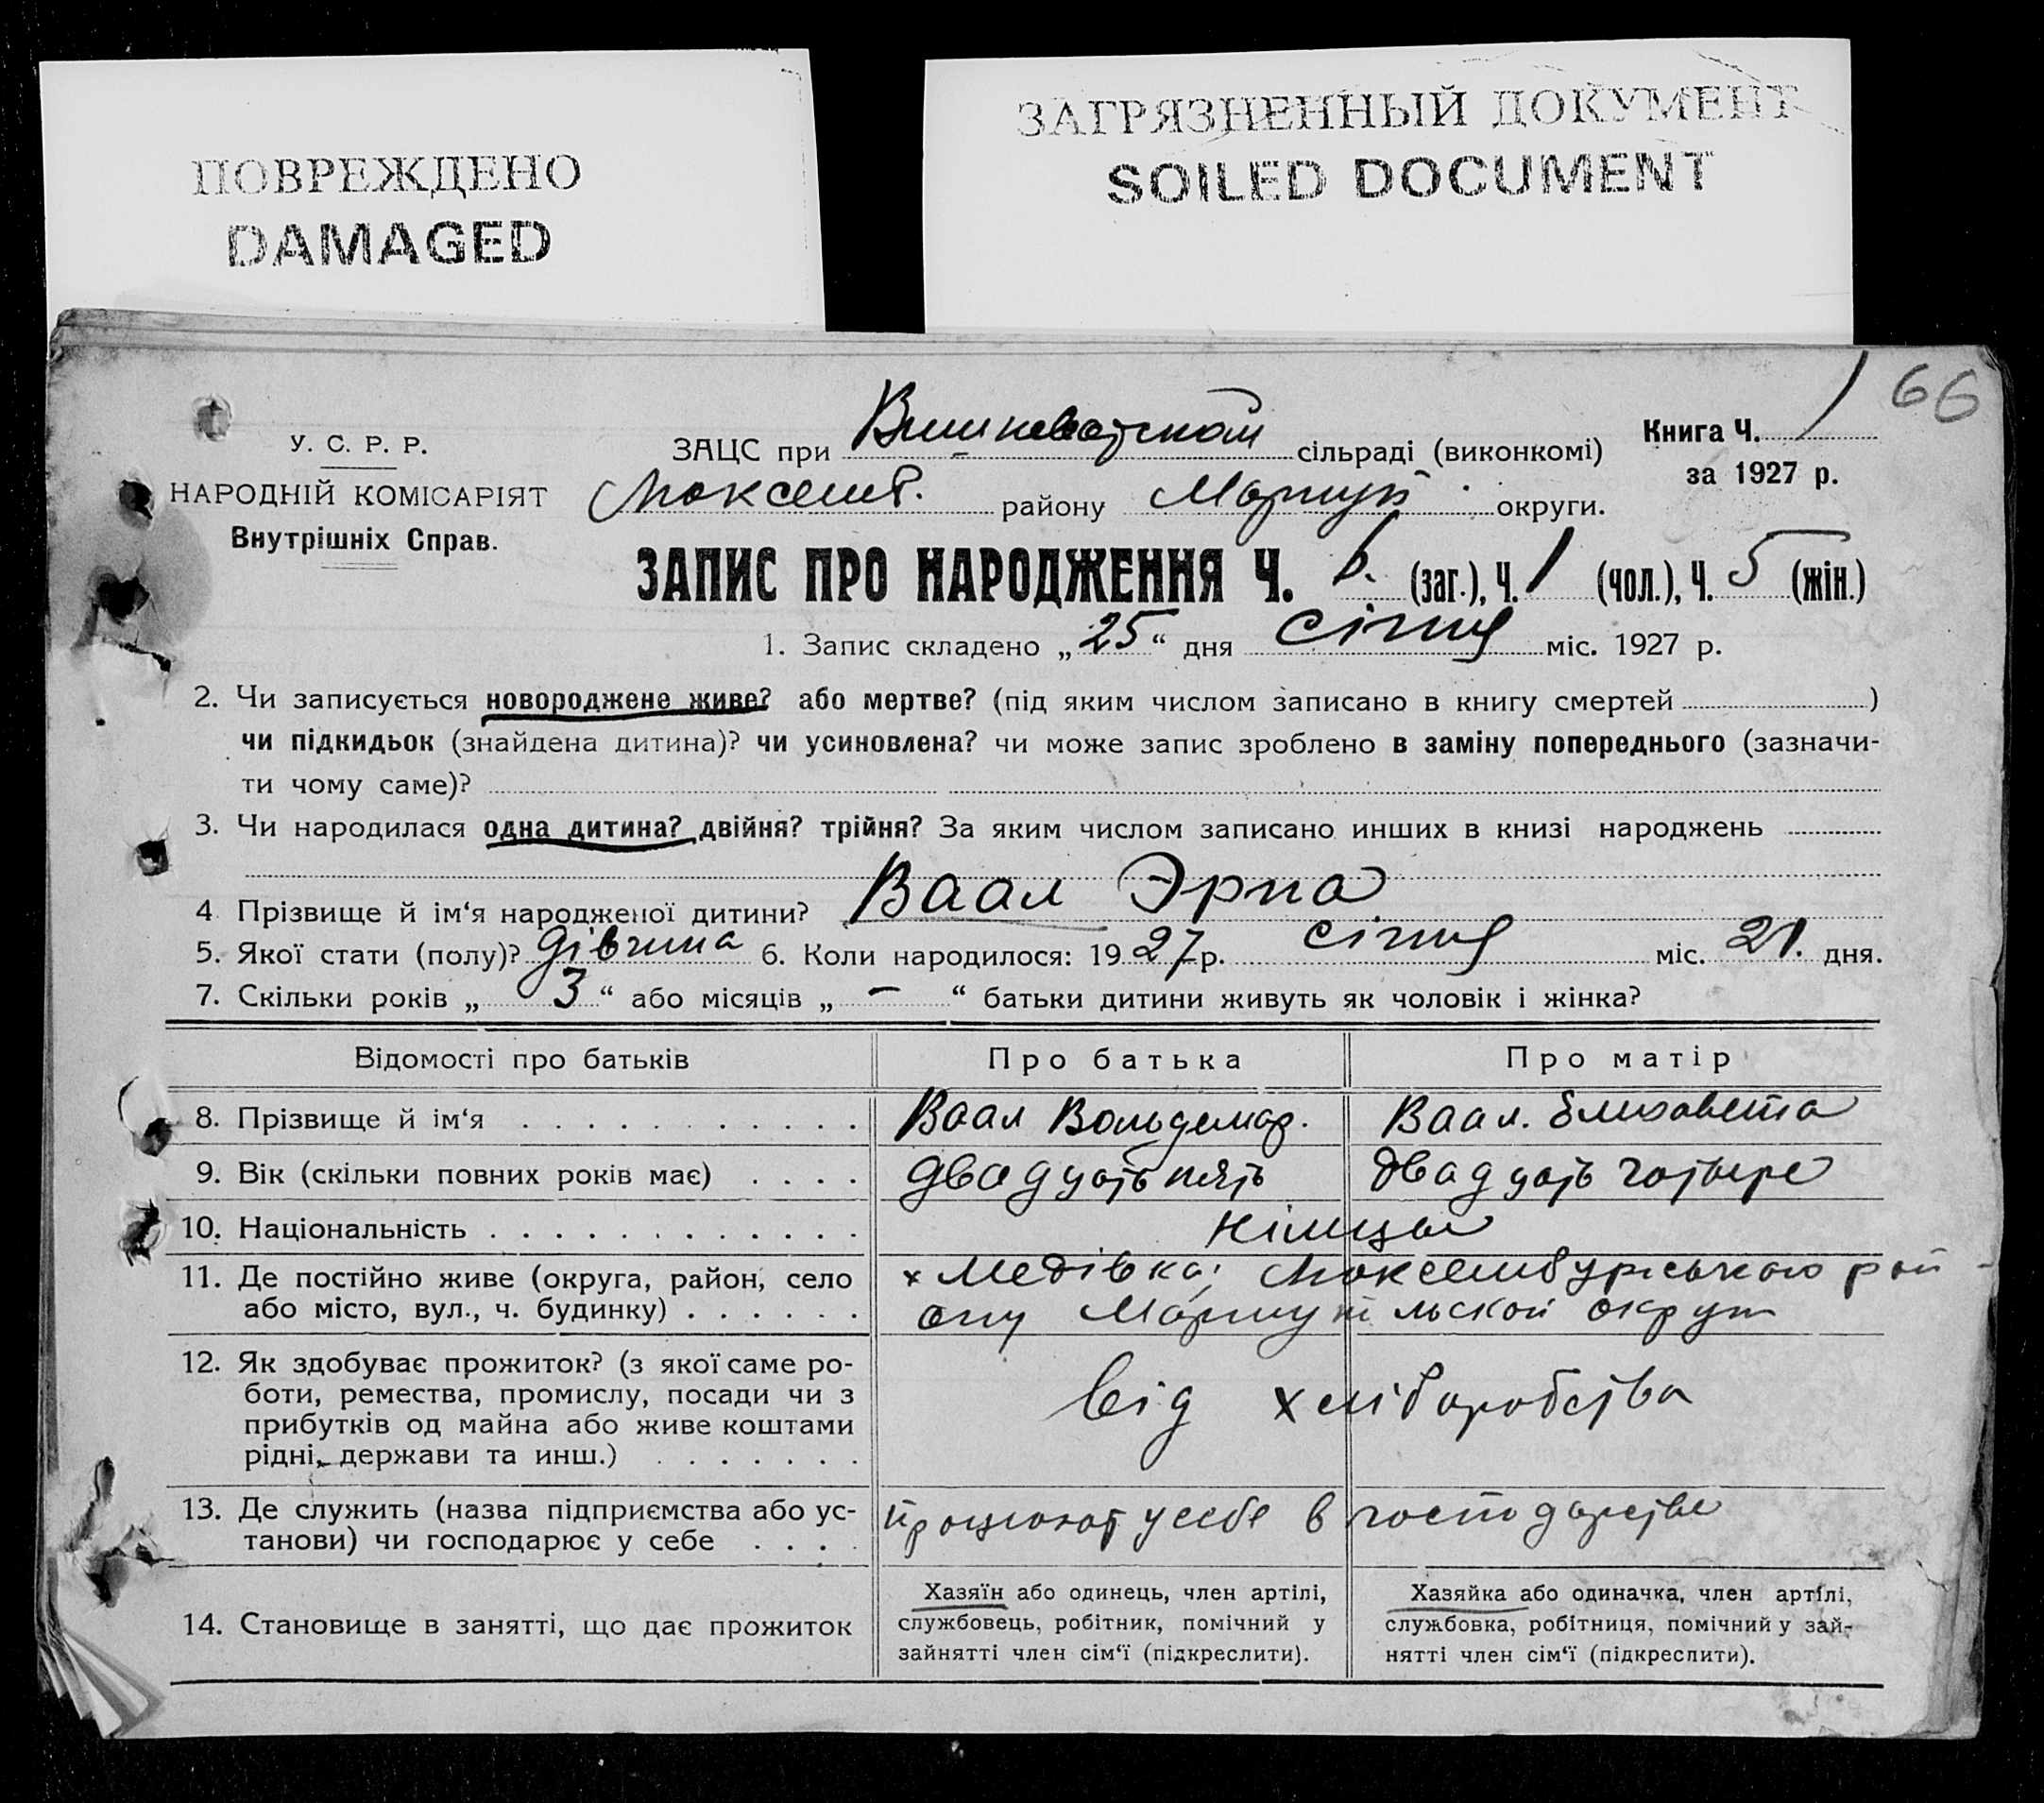 ПОВРЕЖДЕНО
DAMAGED
ЗАГРЯЗНЕННЫЙ ДОКУМЕНТ
SOILED DOCUMENT
66
У. С. Р. Р.
НАРОДНІЙ КОМІСАРІЯТ
Внутрішніх Справ.
ЗАЦС при Вишневатской сільраді (виконкомі)
Книга Ч. 1
за 1927 р.
Люксемб. району Маріуп. округи.
ЗАПИС ПРО НАРОДЖЕННЯ Ч. 6. (заг.), Ч. 1 (чол.), Ч. 5 (жін.)
1. Запис складено „25“ дня січня міс. 1927 р.
2. Чи записується новороджене живе? або мертве? (під яким числом записано в книгу смертей )
чи підкидьок (знайдена дитина)? чи усиновлена? чи може запис зроблено в заміну попереднього (зазначи-
ти чому саме)?
3. Чи народилася одна дитина? двійня? трійня? За яким числом записано инших в книзі народжень
4 Прізвище й ім‘я народженої дитини? Ваал Эрна
5. Якої стати (полу)? дівчина 6. Коли народилося: 1927 р. січня міс. 21. дня.
7. Скільки років „ 3 “ або місяців „ – “ батьки дитини живуть як чоловік і жінка?
Відомості про батьків Про батька Про матір
8. Прізвище й ім‘я Ваал Вольдемар. Ваал. Елизавета
9. Вік (скільки повних років має) двадцать пять двадцать чотыре
10. Національність німцы
11. Де постійно живе (округа, район, село х Медівка, Люксембургського рай-
або місто, вул., ч. будинку) ону Маріупільской округи
12. Як здобуває прожиток? (з якої саме ро-
боти, ремества, промислу, посади чи з
прибутків од майна або живе коштами
рідні, держави та инш.)
від хліборобства
13. Де служить (назва підприємства або ус-
танови) чи господарює у себе
працюют у себе в господарстве
14. Становище в занятті, що дає прожиток
Хазяїн або одинець, член артілі,
службовець, робітник, помічний у
зайнятті член сім‘ї (підкреслити).
Хазяйка або одиначка, член артілі,
службовка, робітниця, помічний у зай-
нятті член сім‘ї (підкреслити).